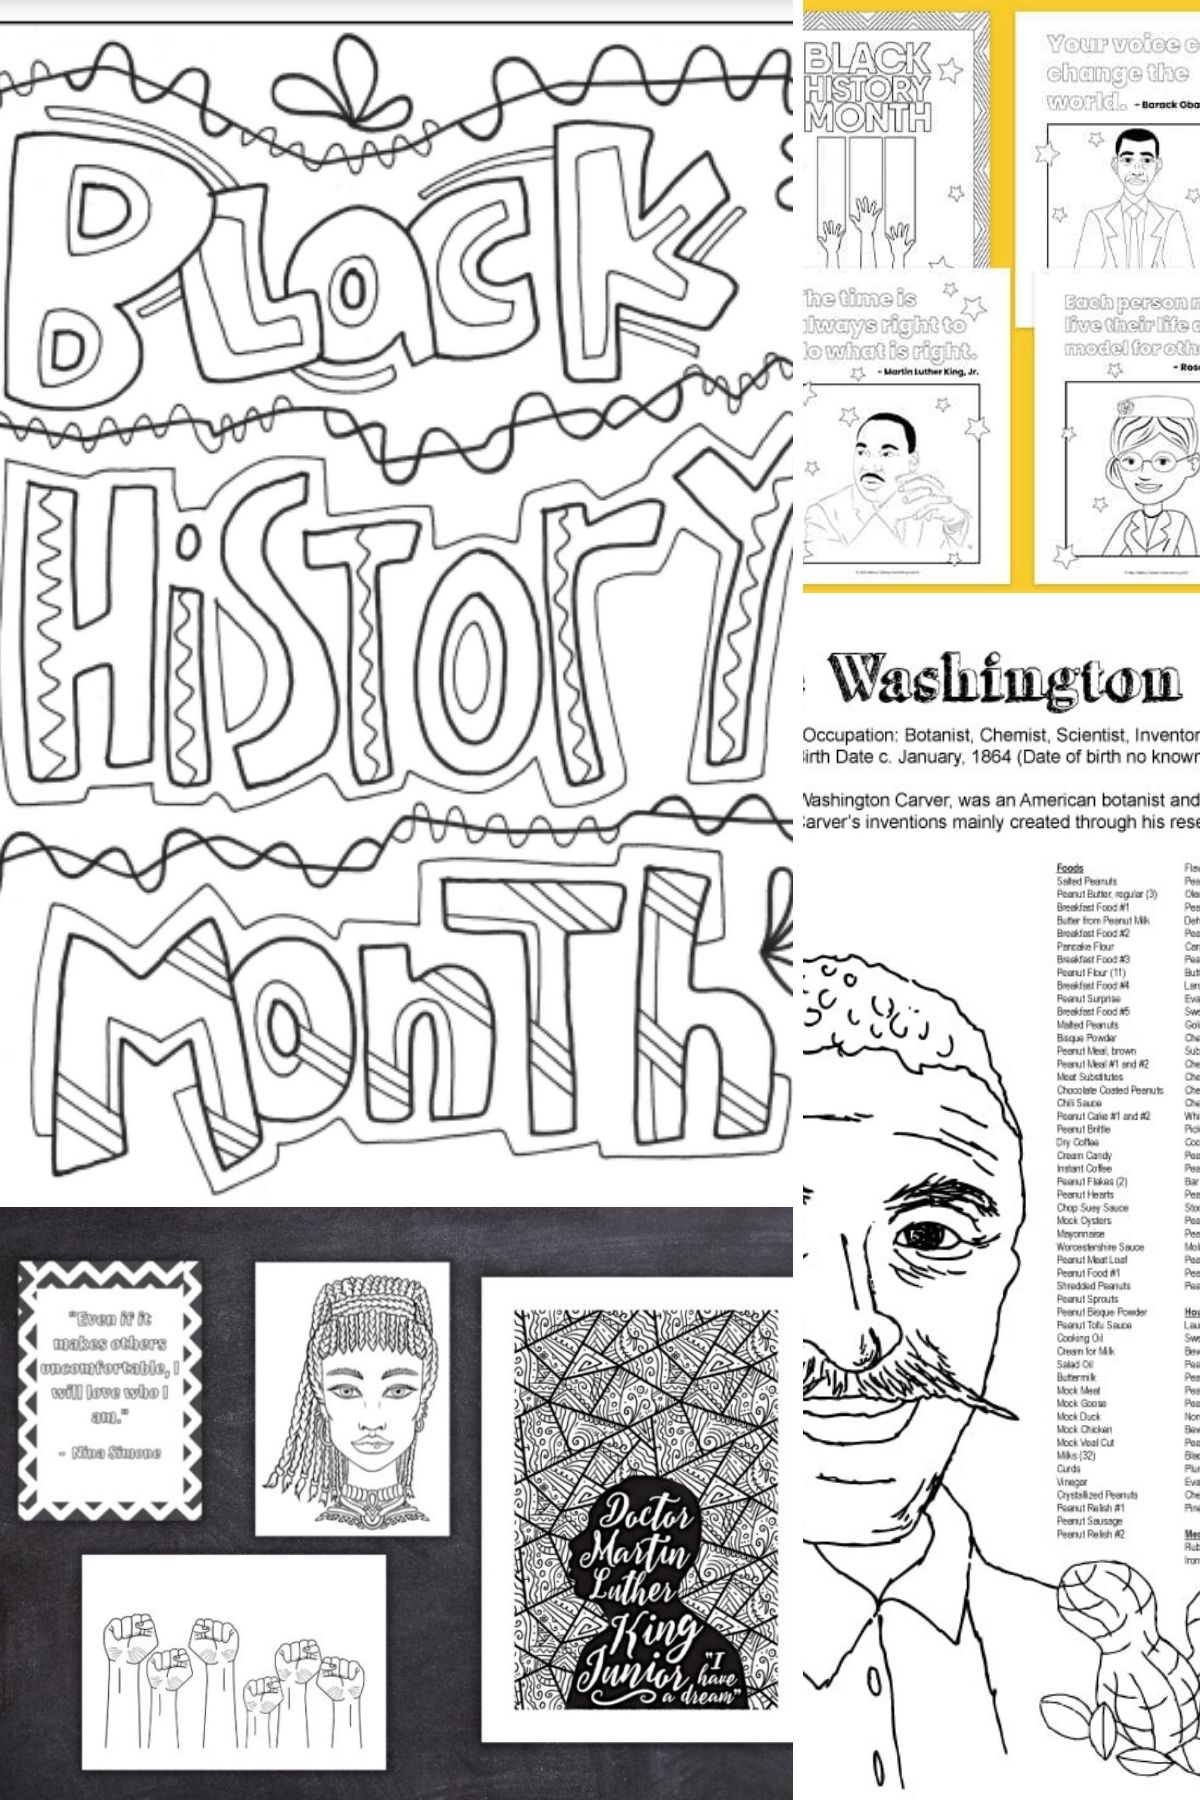 Black
History
Month
BLACK
HISTORY
MONTH
Your voice c
change the
world. - Barack Oba
he time is
lways right to
o what is right.
- Martin Luther King, Jr.
Each person m
live their life a
model for oth
- Rosa
Washington
Occupation: Botanist, Chemist, Scientist, Inventor
irth Date c. January, 1864 (Date of birth no known
Washington Carver, was an American botanist and
Carver's inventions mainly created through his rese
Foods
Salted Peanuts
Peanut Butter, regular (3)
Breakfast Food #1
Butter from Peanut Milk
Breakfast Food #2
Pancake Flour
Breakfast Food #3
Peanut Flour (11)
Breakfast Food #4
Peanut Surprise
Breakfast Food #5
Malted Peanuts
Bisque Powder
Peanut Meal, brown
Peanut Meal #1 and #2
Meat Substitutes
Chocolate Coated Peanuts
Chili Sauce
Peanut Cake #1 and #2
Peanut Brittle
Dry Coffee
Cream Candy
Instant Coffee
Peanut Flakes (2)
Peanut Hearts
Chop Suey Sauce
Mock Oysters
Mayonnaise
Worcestershire Sauce
Peanut Meat Loaf
Peanut Food #1
Shredded Peanuts
Peanut Sprouts
Peanut Bisque Powder
Peanut Tofu Sauce
Cooking Oil
Cream for Milk
Salad Oil
Buttermilk
Mock Meat
Mock Goose
Mock Duck
Mock Chicken
Mock Veal Cut
Milks (32)
Curds
Vinegar
Crystallized Peanuts
Peanut Relish #1
Peanut Sausage
Peanut Relish #2
"Even if it
makes others
uncomfortable, I
will love who I
am."
- Nina Simone
Doctor
Martin
Luther
King
Junior "I
have
a dream"